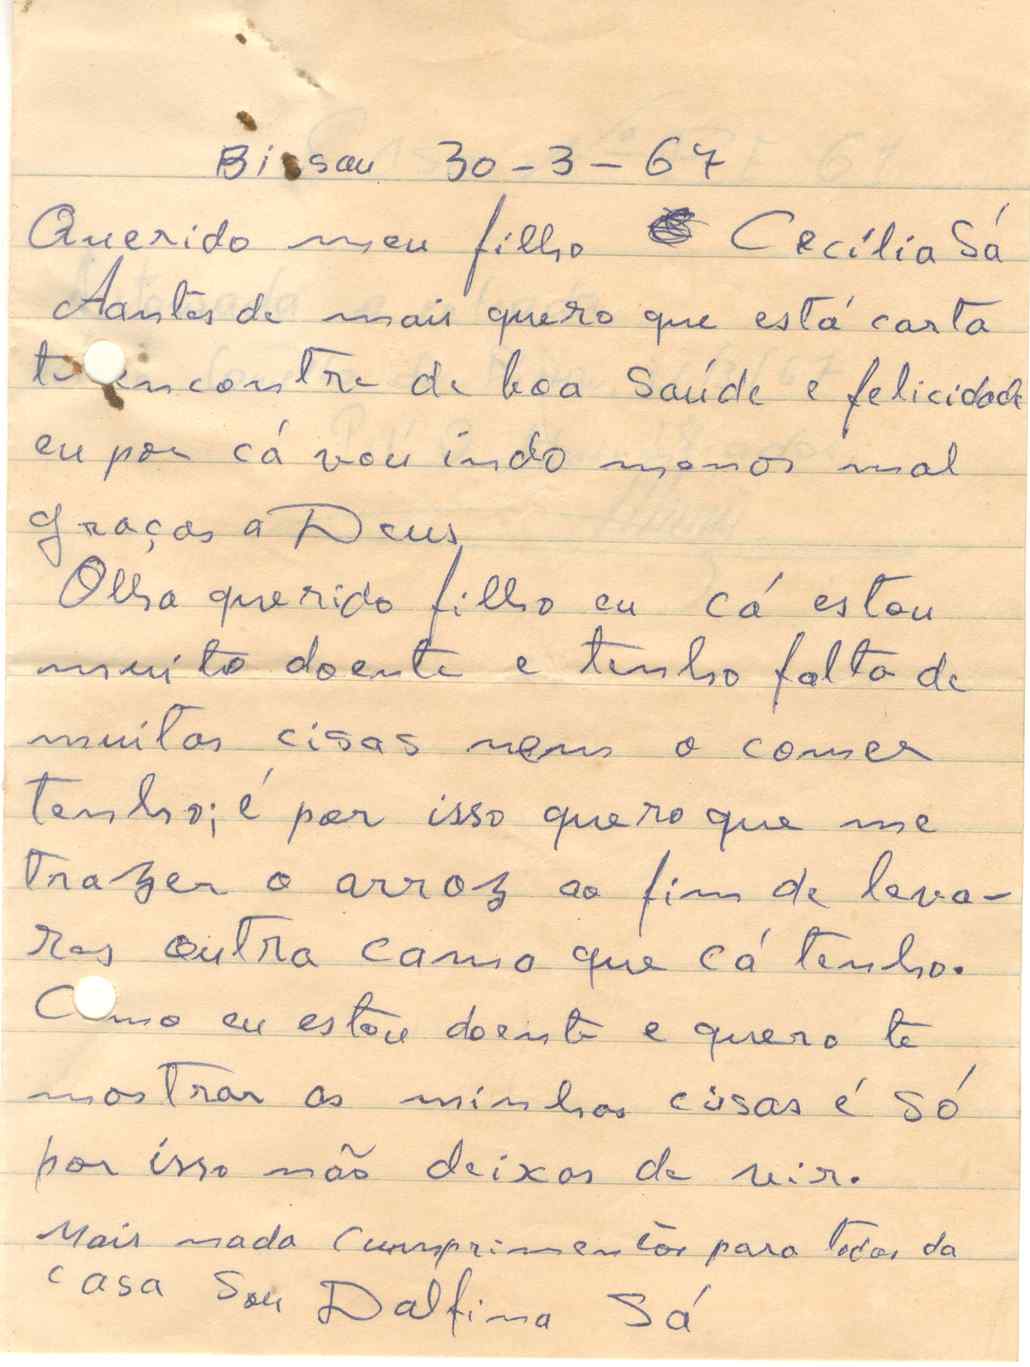 Bissau 30-3-67
Querido meu filho Cecília Sá
Aantes de mais quero que está carta
te encontre de boa saúde e felicidade
eu por cá vou indo menos mal
graças a Deus
Olha querido filho eu cá estou
muito doente e tenho falta de
muitas cisas nem o comer
tenho; é por isso quero que me
trazer o arroz ao fim de leva-
res outra cama que cá tenho.
Como eu estou doente e quero te
mostrar as minhas cisas é só
por isso não deixas de vir.
Mais nada Cumprimentos para todos da
casa Sou Dalfina Sá